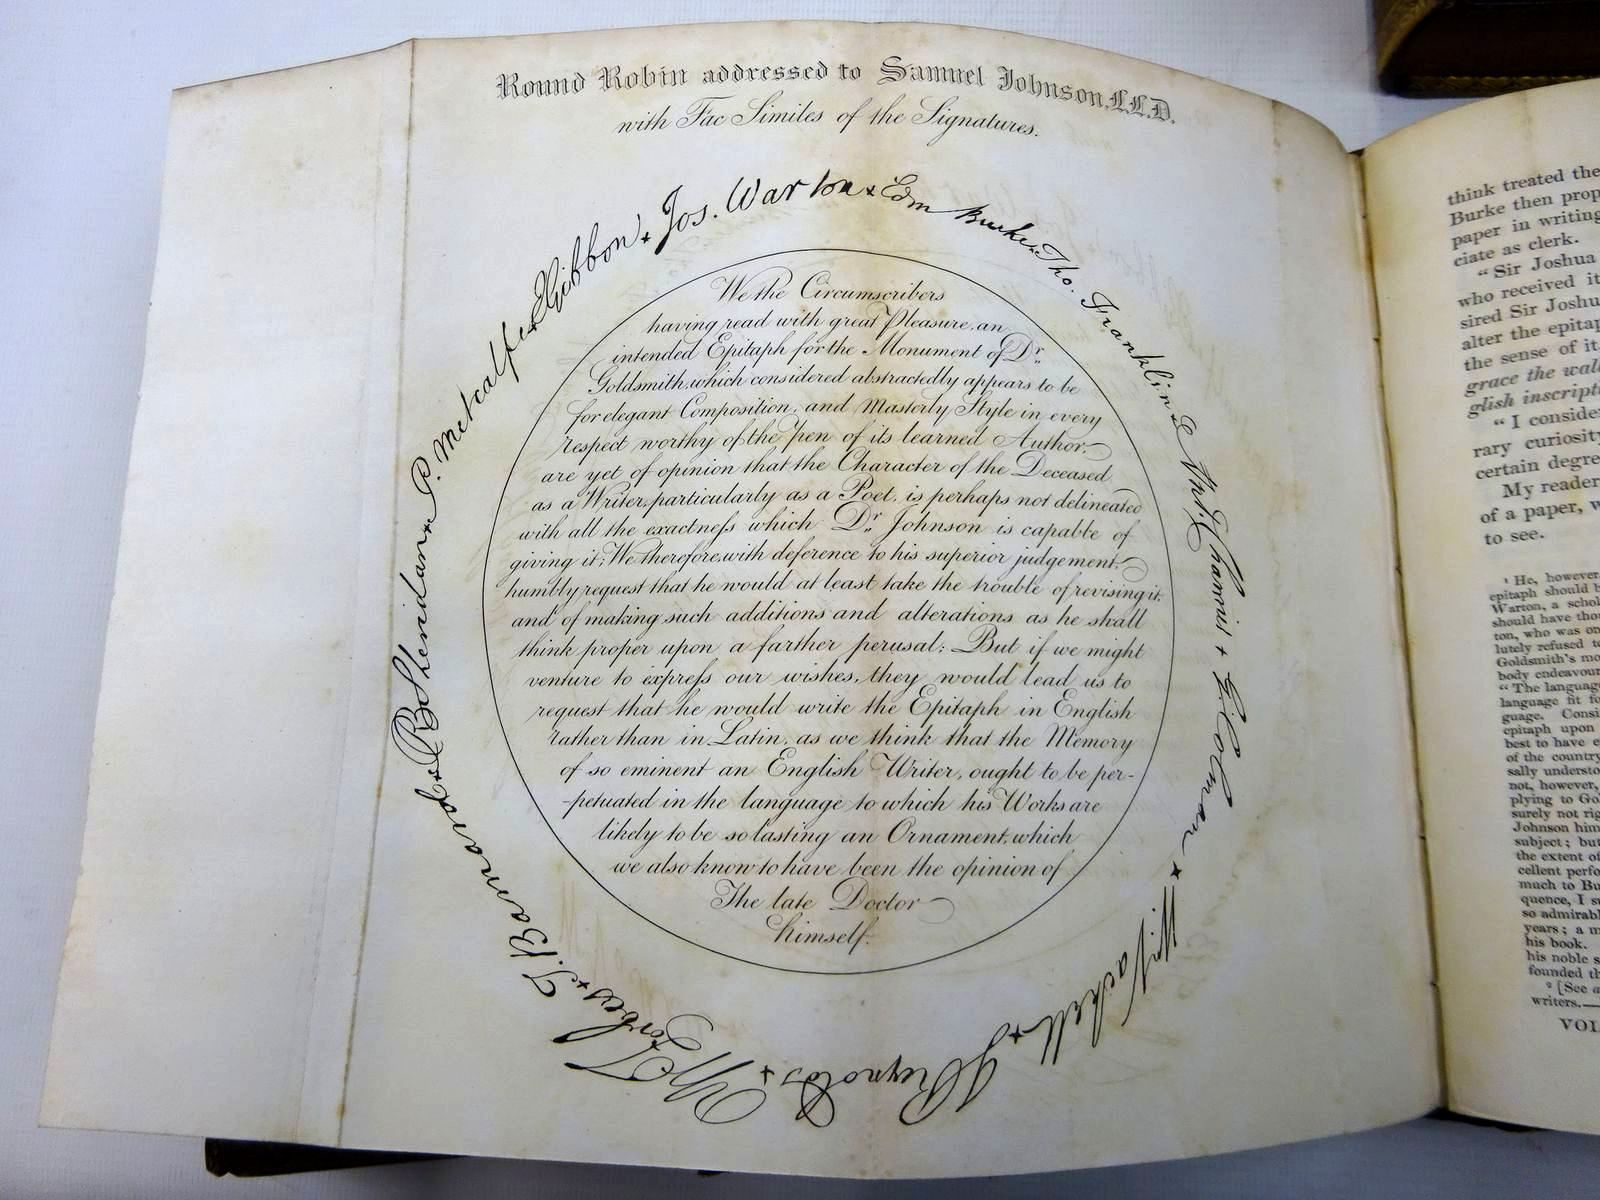 Round Robin addressed to Samuel Johnson, L.L.D.
with Fac Similes of the Signatures.
EGibbon + Jos. Warton + Edm Burke + Tho. Franklin + Ant. Chamier + G. Colman + Wm Vachell + JReynolds + Wm Forbes + T. Barnard + RBSheridan + P. Metcalf +
We the Circumscribers
having read with great Pleasure, an
intended Epitaph for the Monument of Dr.
Goldsmith, which considered abstractedly appears to be
for elegant Composition, and Masterly Style in every
respect worthy of the pen of its learned Author,
are yet of opinion that the Character of the Deceased
as a Writer, particularly as a Poet, is perhaps not delineated
with all the exactness which Dr. Johnson is capable of
giving it; We therefore, with deference to his superior judgement,
humbly request that he would at least take the trouble of revising it,
and of making such additions and alterations as he shall
think proper upon a farther perusal: But if we might
venture to express our wishes, they would lead us to
request that he would write the Epitaph in English
rather than in Latin, as we think that the Memory
of so eminent an English Writer, ought to be per-
-petuated in the language to which his Works are
likely to be so lasting an Ornament, which
we also know to have been the opinion of
The late Doctor
himself.
think treated the
Burke then prop
paper in writing
ciate as clerk.
"Sir Joshua
who received it
sired Sir Joshu
alter the epitap
the sense of it
grace the wall
glish inscripti
"I conside
rary curiosity
certain degre
My reader
of a paper, w
to see.
¹ He, however
epitaph should b
Warton, a schol
should have thou
ton, who was on
lutely refused to
Goldsmith's mo
body endeavour
"The language
language fit fo
guage. Consi
epitaph upon
best to have e
of the country
sally understo
not, however,
plying to Go
surely not rig
Johnson him
subject; but
the extent of
cellent perfo
much to Bu
quence, I su
so admirabl
years; a m
his book.
his noble s
founded th
² [See a
writers.—
VOL